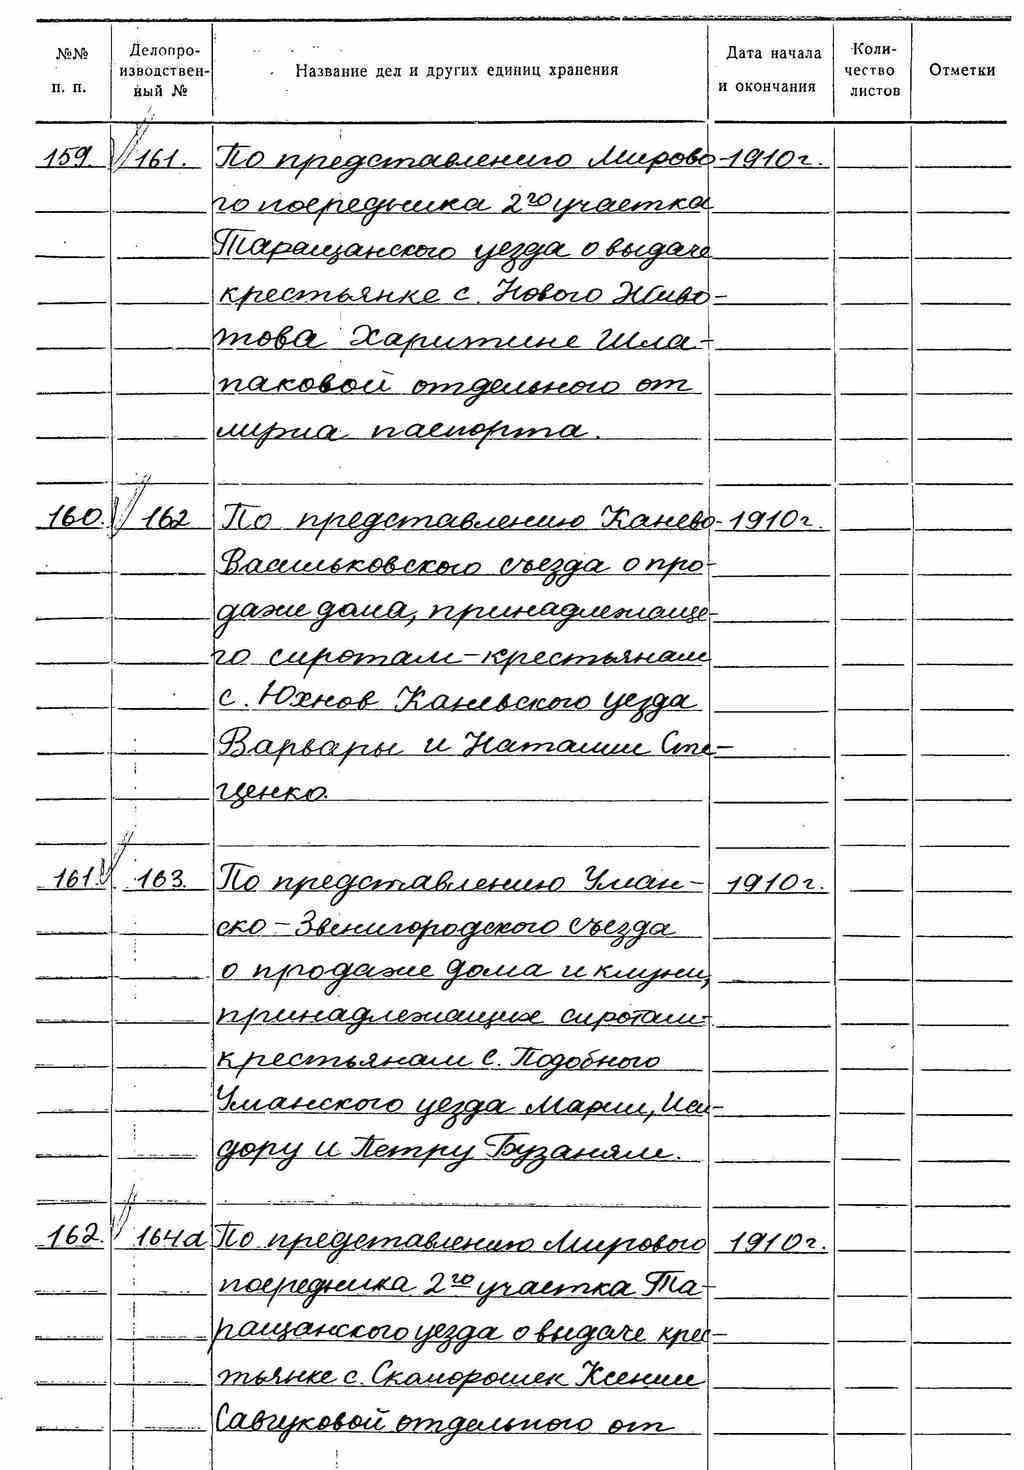 №№ п. п. Делопроизводствен-ный № Название дел и других единиц хранения Дата начала и окончания Коли-чество листов Отметки
159. 161. По представлению Мирово- 1910 г.
го посредника 2го участка
Таращанского уезда о выдаче
крестьянке с. Нового Живо-
това Харитине Шла-
паковой отдельного от
мужа паспорта.
160. 162 По представлению Канево- 1910 г.
Васильковского съезда о про-
даже дома, принадлежаще-
го сиротам-крестьянам
с. Юхнов Каневского уезда
Варвары и Наталии Сте-
ценко.
161. 163. По представлению Уман- 1910 г.
ско-Звенигородского съезда
о продаже дома и клуни,
принадлежащих сиротам-
крестьянам с. Подобного
Уманского уезда Марии, Иси-
дору и Петру Бузаням.
162. 164а По представлению Мирового 1910 г.
посредника 2го участка Та-
ращанского уезда о выдаче крес-
тьянке с. Скоморошек Ксении
Савчуковой отдельного от